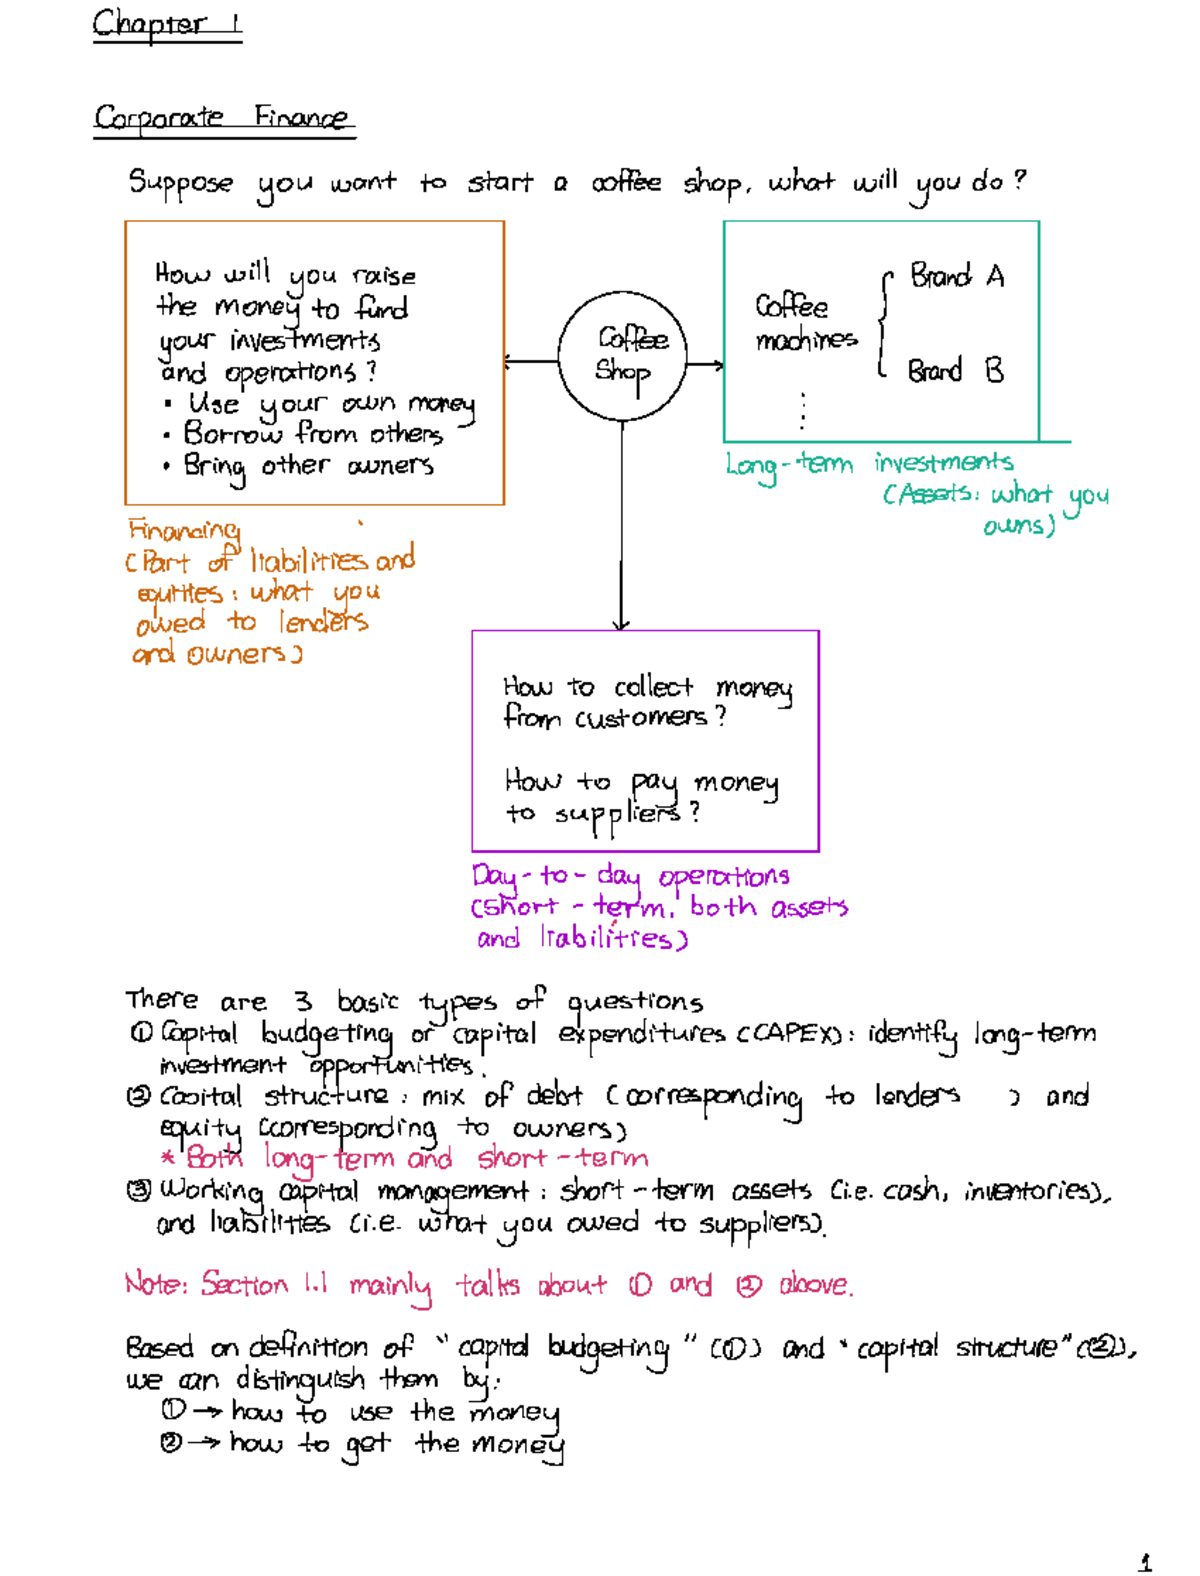 Chapter 1
Corporate Finance
Suppose you want to start a coffee shop, what will you do?
How will you raise
the money to fund
your investments
and operations?
• Use your own money
• Borrow from others
• Bring other owners
Financing
(Part of liabilities and
equities: what you
owed to lenders
and owners)
Coffee
Shop
Coffee
machines
Brand A
Brand B
Long-term investments
(Assets: what you
owns)
How to collect money
from customers?
How to pay money
to suppliers?
Day-to-day operations
(Short-term, both assets
and liabilities)
There are 3 basic types of questions
① Capital budgeting or capital expenditures (CAPEX): identify long-term
investment opportunities.
② Capital structure: mix of debt (corresponding to lenders ) and
equity (corresponding to owners)
* Both long-term and short-term
③ Working capital management: short-term assets (i.e. cash, inventories),
and liabilities (i.e. what you owed to suppliers).
Note: Section 1.1 mainly talks about ① and ② above.
Based on definition of "capital budgeting" (①) and "capital structure" (②),
we can distinguish them by:
① → how to use the money
② → how to get the money
1